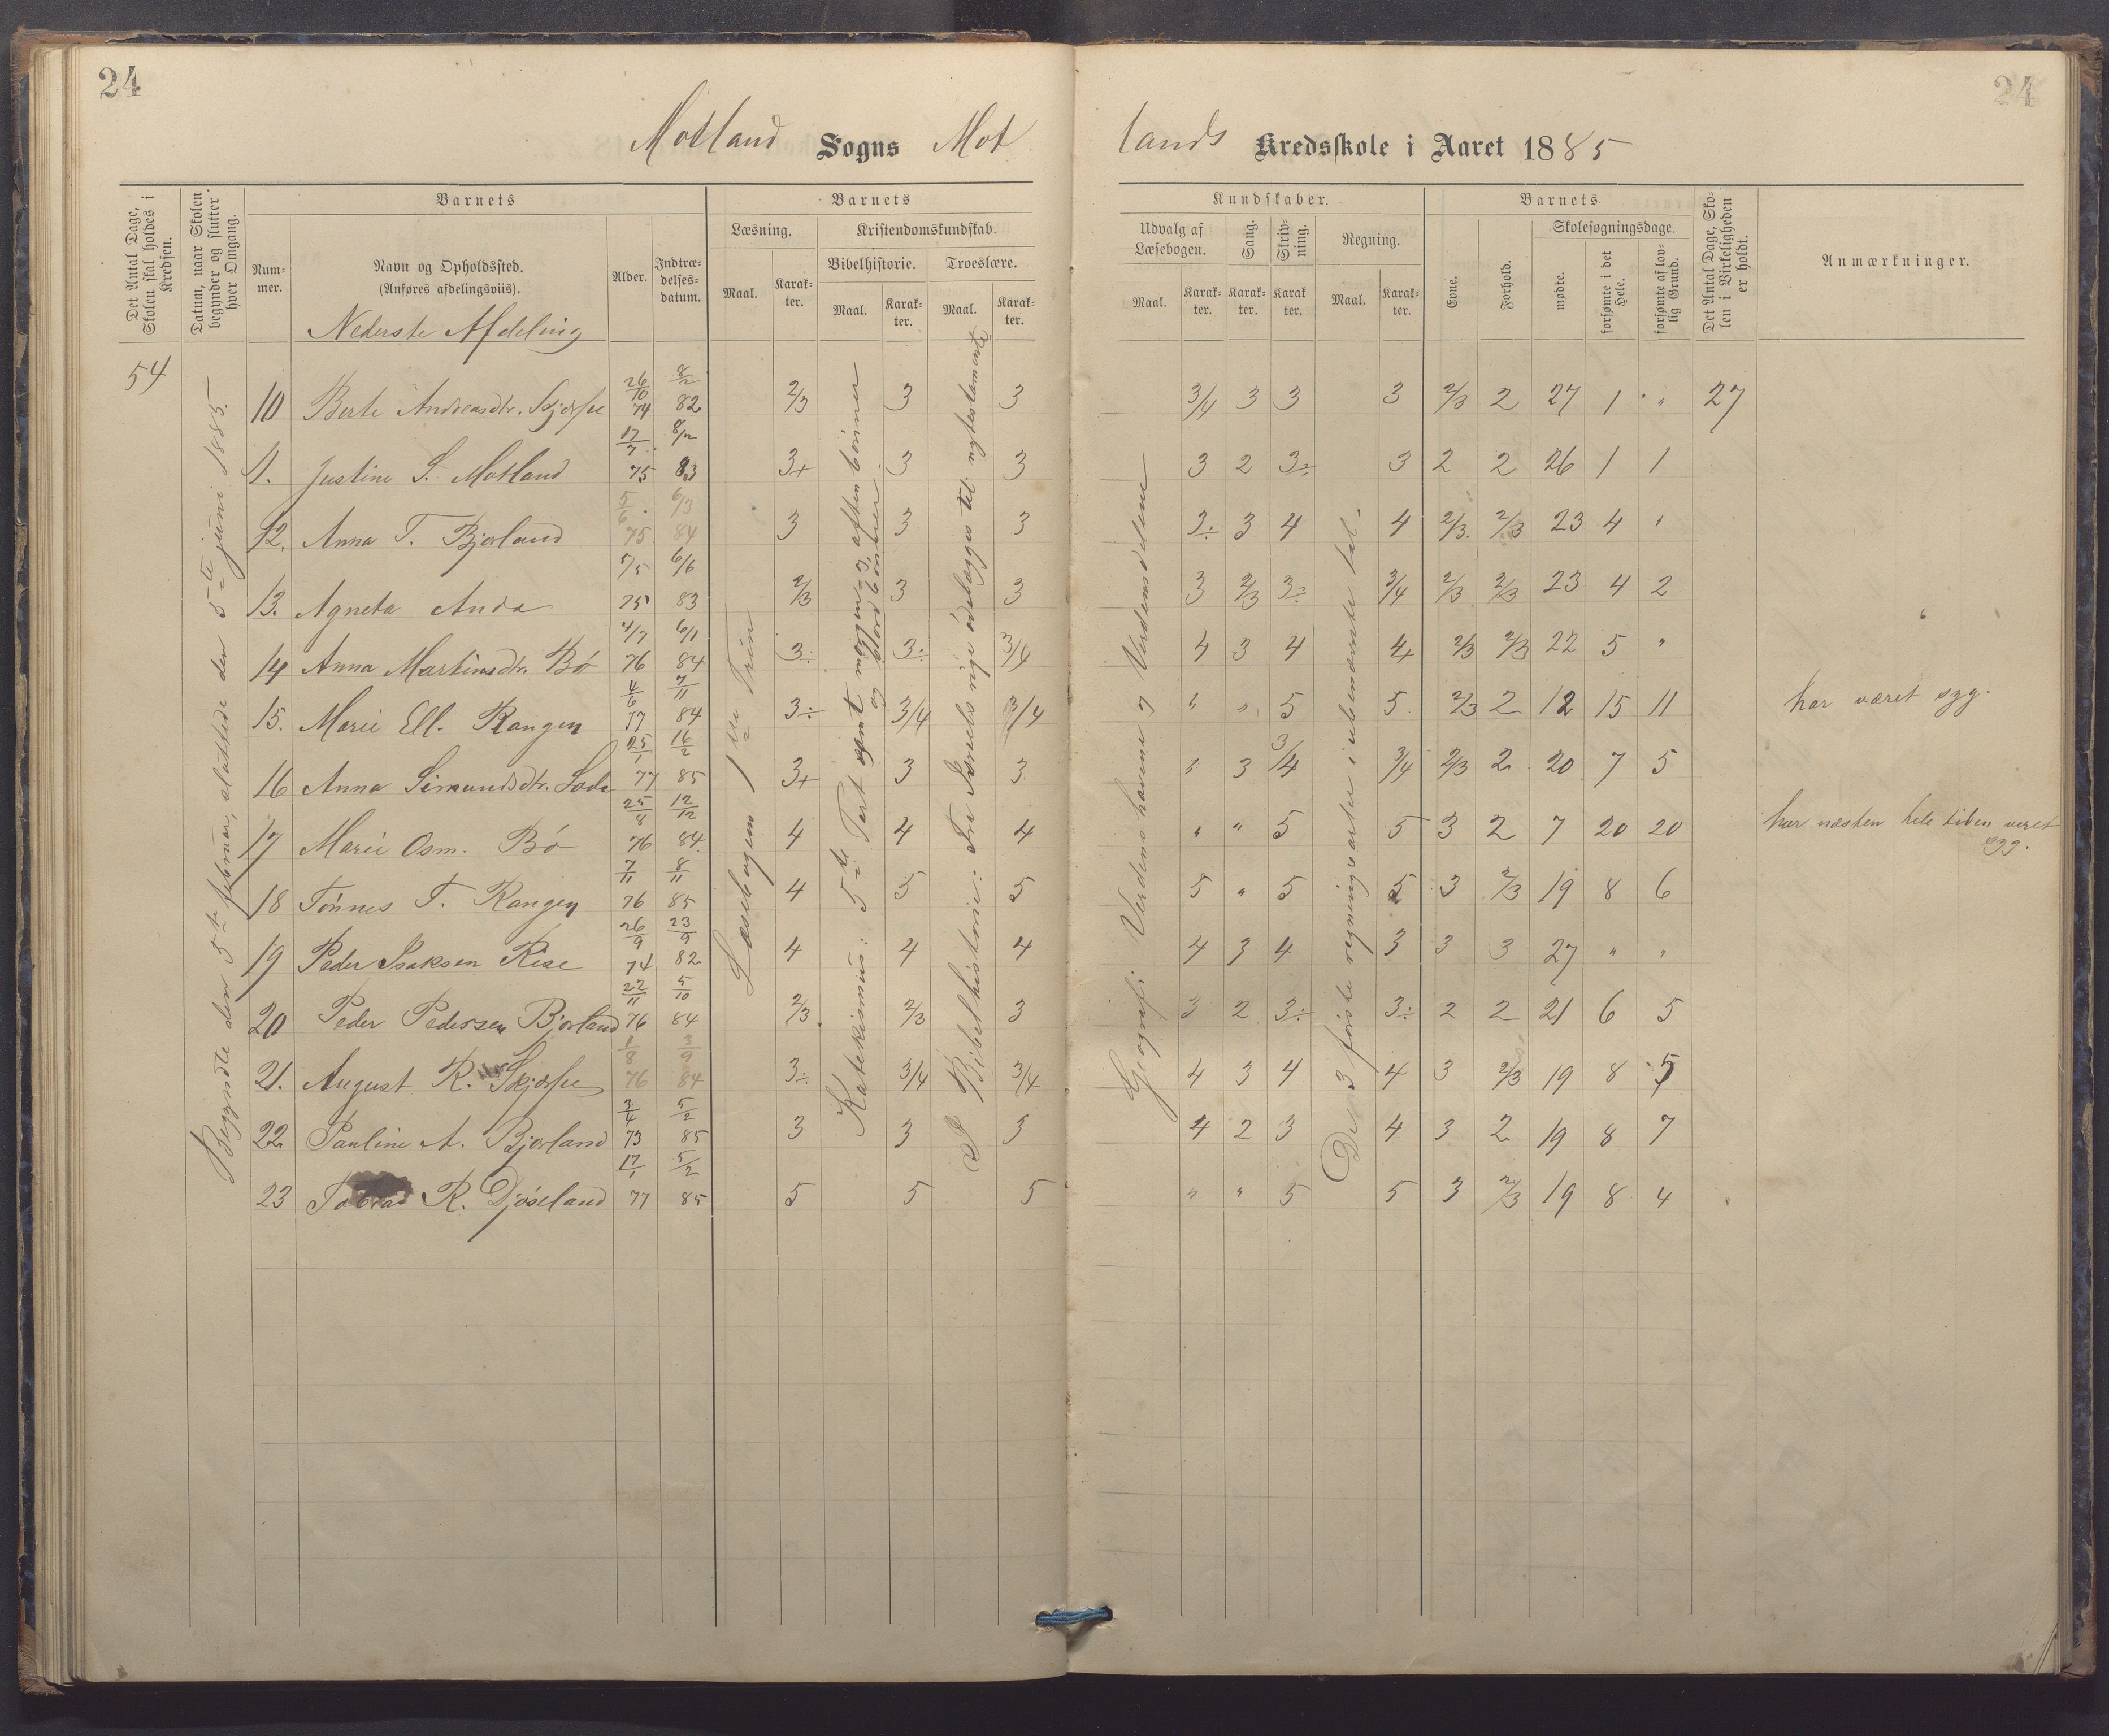 24
24
Motland Sogns Motlands Kredsskole i Aaret 1885
Det Antal Dage, Skolen skal holdes i Kredsen.
Datum, naar Skolen begynder og slutter hver Omgang.
Barnets
Num-mer.
Navn og Opholdssted.
(Anføres afdelingsviis).
Alder.
Indtræ-delses-datum.
Barnets
Læsning.
Maal.
Karak-ter.
Kristendomskundskab.
Bibelhistorie.
Maal.
Karak-ter.
Troeslære.
Maal.
Karak-ter.
Kundskaber.
Udvalg af Læsebogen.
Maal.
Karak-ter.
Sang.
Karak-ter.
Skriv-ning.
Karak ter.
Regning.
Maal.
Karak-ter.
Barnets
Evne.
Forhold.
Skolesøgningsdage.
mødte.
forsømte i det Hele.
forsømte af lov-lig Grund.
Det Antal Dage, Sko-len i Virkeligheden er holdt.
Anmærkninger.
Nederste Afdeling
54
Begyndte den 5te februar, sluttede den 5te juni 1885.
Læsebogens 1ste Trin
Katekismus: 5te Part samt morgen og aftenbønner
og bordbønner.
Bibelhistorie: Fra Israels rige ødelægges til nytestamente
Geografi: Verdens havene og Verdensdelene
De 3 første regningsarter i ubenævnte tal.
10 Berte Andreasdtr. Skjærpe 26/10 74 8/2 82 2/3 3 3 3/4 3 3 3 2/3 2 27 1 " 27
11. Justine S. Motland 17/7 75 8/2 83 3+ 3 3 3 2 3÷ 3 2 2 26 1 1
12. Anna T. Bjorland 5/6 75 6/3 84 3 3 3 3÷ 3 4 4 2/3 2/3 23 4 1
13. Agneta Anda 5/5 75 6/6 83 2/3 3 3 3 2/3 3÷ 3/4 2/3 2/3 23 4 2
14 Anna Martinsdtr. Bø 4/7 76 6/1 84 3÷ 3÷ 3/4 4 3 4 4 2/3 2/3 22 5 "
15. Marie Ell. Rangen 4/6 77 7/11 84 3÷ 3/4 3/4 " " 5 5 2/3 2 12 15 11 har været syg.
16 Anna Simundsdtr. Lode 25/1 77 16/2 85 3+ 3 3 3 3 3/4 3/4 2/3 2 20 7 5
17 Marie Osm. Bø 25/8 76 12/12 84 4 4 4 " " 5 5 3 2 7 20 20 har næsten hele tiden veret
syg.
18 Tønnes T. Rangen 7/11 76 8/11 85 4 5 5 5 " 5 5 3 2/3 19 8 6
19 Peder Isaksen Rise 26/9 74 23/9 82 4 4 4 4 3 4 3 3 3 27 " "
20 Peder Pedersen Bjorland 22/11 76 5/10 84 2/3. 2/3 3 3 2 3÷ 3÷ 2 2 21 6 5
21. August R. Skjærpe 1/8 76 3/9 84 3÷ 3/4 3/4 4 3 4 4 3 2/3 19 8 5
22 Pauline A. Bjorland 3/4 73 5/2 85 3 3 3 4 2 3 4 3 2 19 8 7
23 R. Djøseland 17/1 77 5/2 85 5 5 5 " " 5 5 3 2/3 19 8 4